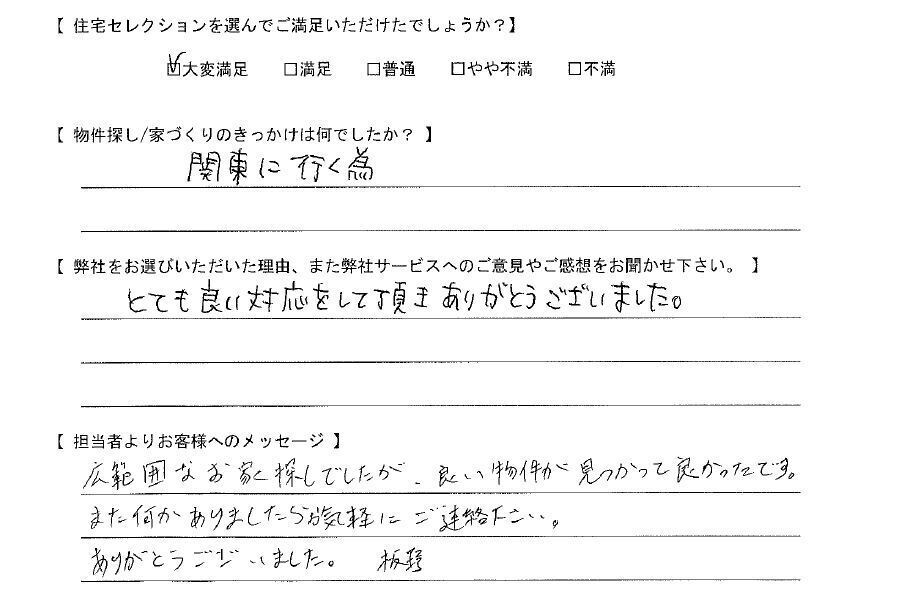 【 住宅セレクションを選んでご満足いただけたでしょうか？】
☑大変満足 □満足 □普通 □やや不満 □不満
【 物件探し/家づくりのきっかけは何でしたか？ 】
関東に行く為
【 弊社をお選びいただいた理由、また弊社サービスへのご意見やご感想をお聞かせ下さい。 】
とても良い対応をして頂きありがとうございました。
【 担当者よりお客様へのメッセージ 】
広範囲なお家探しでしたが、良い物件が見つかって良かったです。
また何かありましたらお気軽にご連絡下さい。
ありがとうございました。 板野